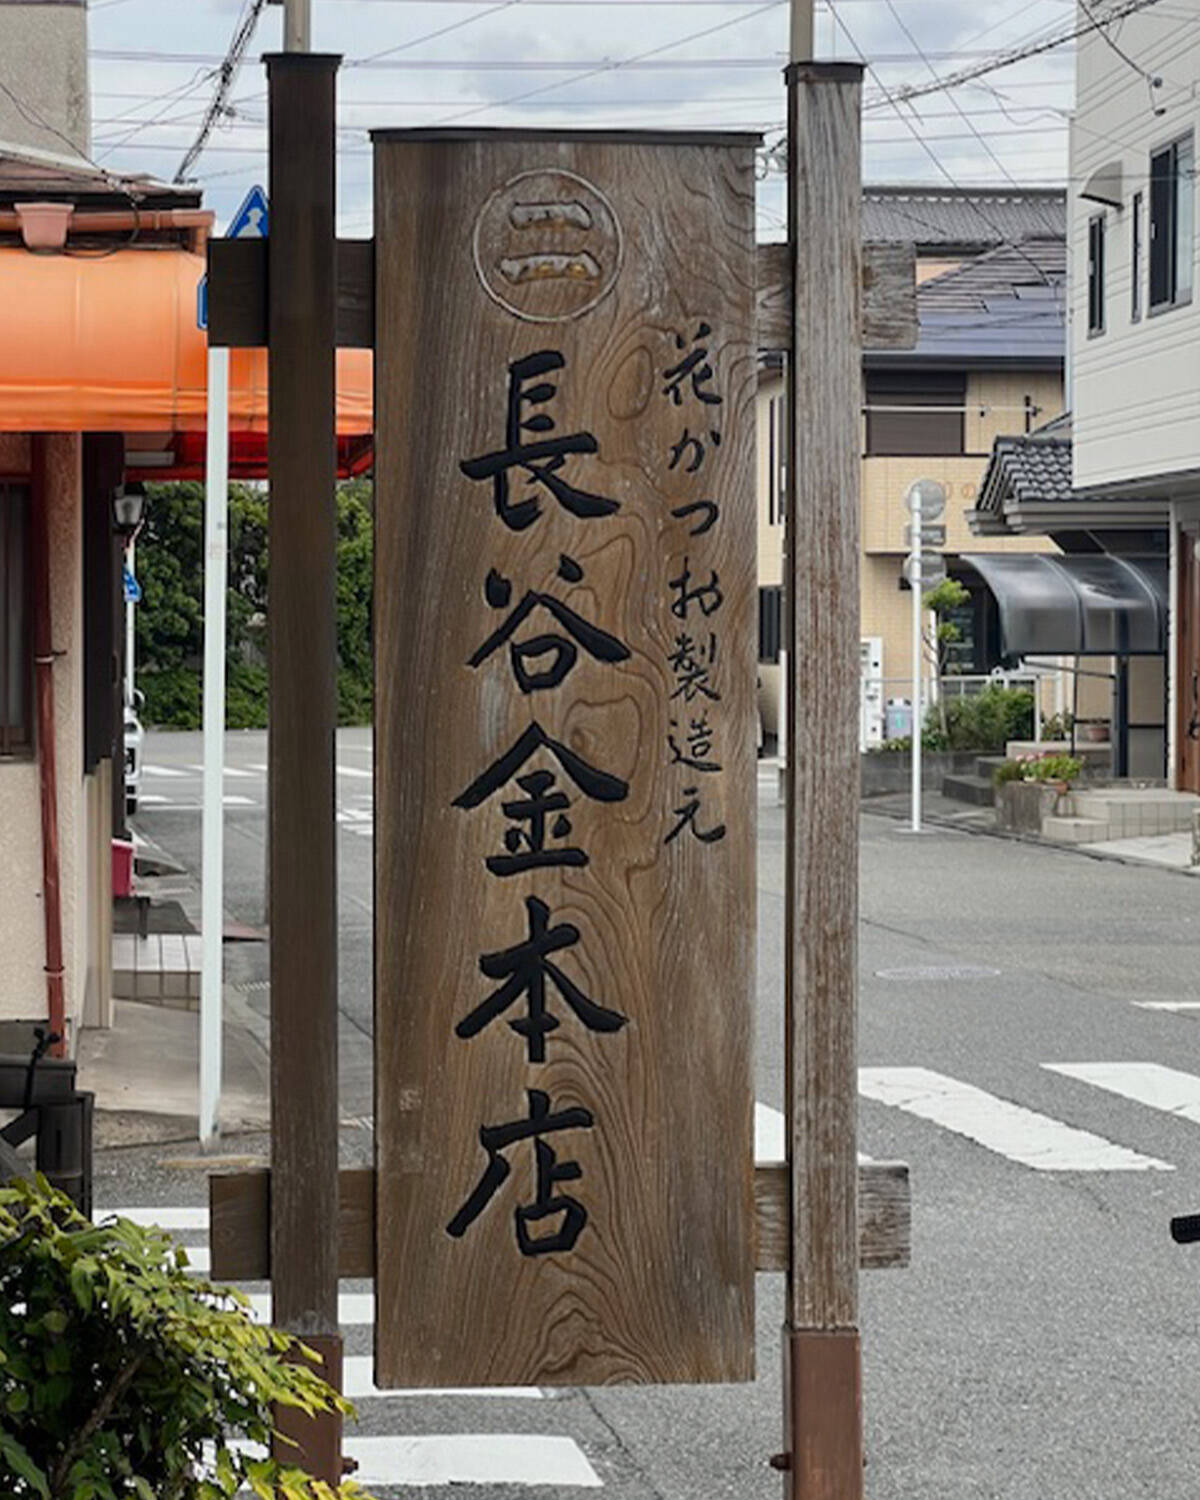 花かつお製造元
二
長谷金本店